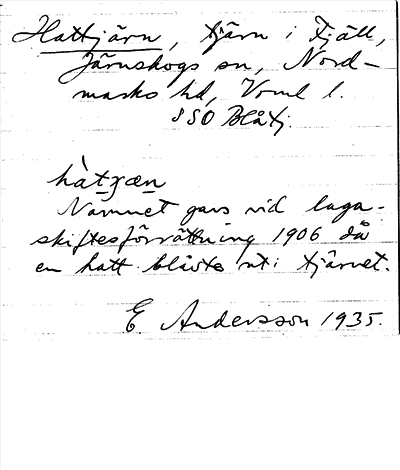 Hattjärn, tjärn i Fjäll,
Järnskogs sn, Nord-
marks hd, Vrml l.
SSO Blåtj.
hàtʒæn
Namnet gavs vid laga-
skiftesförrättning 1906 då
en hatt blåste ut i tjärnet.
E. Andersson 1935.